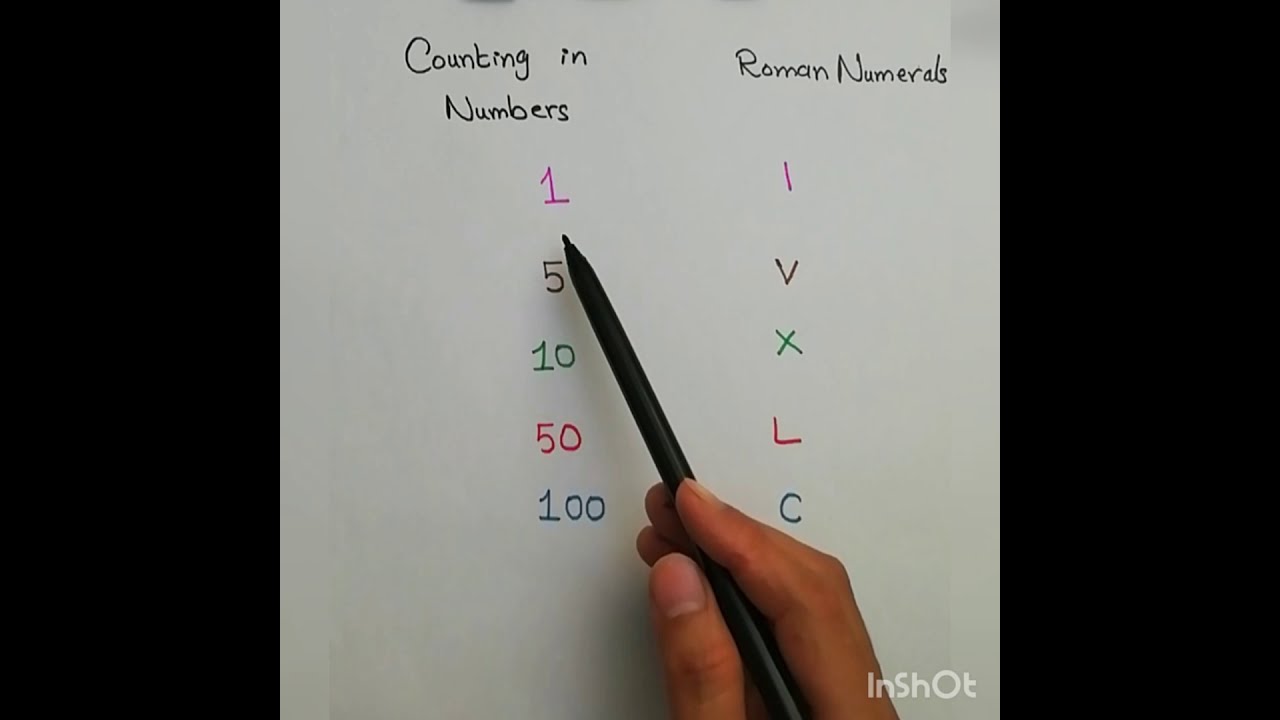 Counting in
Numbers
Roman Numerals
1 I
5 V
10 X
50 L
100 C
InShOt